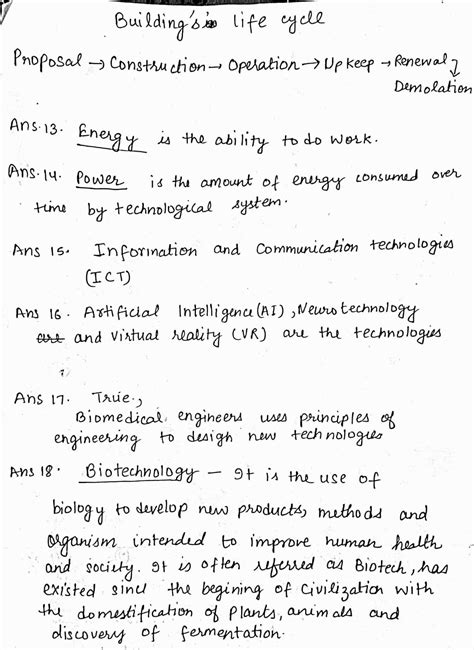 Building's life cycle
Proposal → Construction → Operation → Upkeep → Renewal
Demolation
Ans.13. Energy is the ability to do work.
Ans.14. Power is the amount of energy consumed over
time by technological system.
Ans 15. Information and Communication technologies
(ICT)
Ans 16. Artificial Intelligence (AI), Neurotechnology
and virtual reality (VR) are the technologies
Ans 17. True.,
Biomedical engineers uses principles of
engineering to design new technologies
Ans 18. Biotechnology — It is the use of
biology to develop new products, methods and
organism intended to improve human health
and society. It is often referred as Biotech, has
existed since the begining of civilization with
the domestification of plants, animals and
discovery of fermentation.